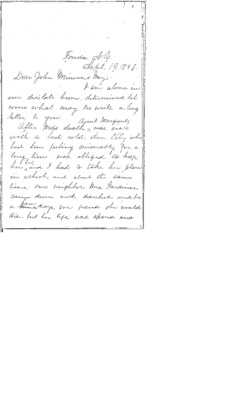 Fonda N.Y.
Sept. 19. 1887.
Dear John Minnie & May:
I am alone in
our desolate home, determined let
come what may to write a long
letter to you. Aunt Margaret
After death, was sick
with a bad cold. then who
had been feeling miserably for a
long time was obliged to
her, and I had to take her place
in school, and about the same
time our neighbor Mrs
came down with and for
a days we feared she would
die. but her life was spared and